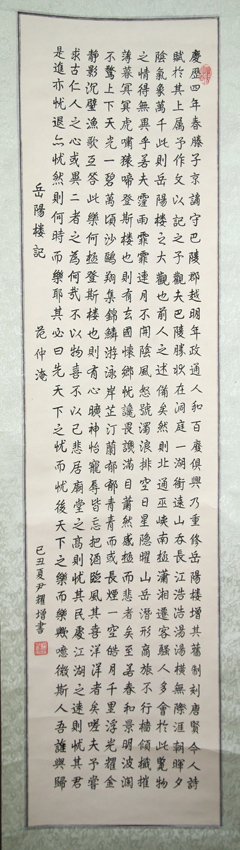 慶歷四年春滕子京謫守巴陵郡越明年政通人和百廢俱興乃重修岳陽樓增其舊制刻唐賢今人詩
賦於其上屬予作文以記之予觀夫巴陵勝狀在洞庭一湖銜遠山吞長江浩浩湯湯橫無際涯朝暉夕
陰氣象萬千此則岳陽樓之大觀也前人之述備矣然則北通巫峽南極瀟湘遷客騷人多會於此覽物
之情得無異乎若夫霪雨霏霏連月不開陰風怒號濁浪排空日星隱曜山岳潛形商旅不行檣傾楫摧
薄暮冥冥虎嘯猿啼登斯樓也則有去國懷鄉憂讒畏譏滿目蕭然感極而悲者矣至若春和景明波瀾
不驚上下天光一碧萬頃沙鷗翔集錦鱗游泳岸芷汀蘭郁郁青青而或長煙一空皓月千里浮光耀金
靜影沉璧漁歌互答此樂何極登斯樓也則有心曠神怡寵辱皆忘把酒臨風其喜洋洋者矣嗟夫予嘗
求古仁人之心或異二者之為何哉不以物喜不以己悲居廟堂之高則憂其民處江湖之遠則憂其君
是進亦憂退亦憂然則何時而樂耶其必曰先天下之憂而憂後天下之樂而樂歟噫微斯人吾誰與歸
岳陽樓記 范仲淹
己丑夏尹耀增書